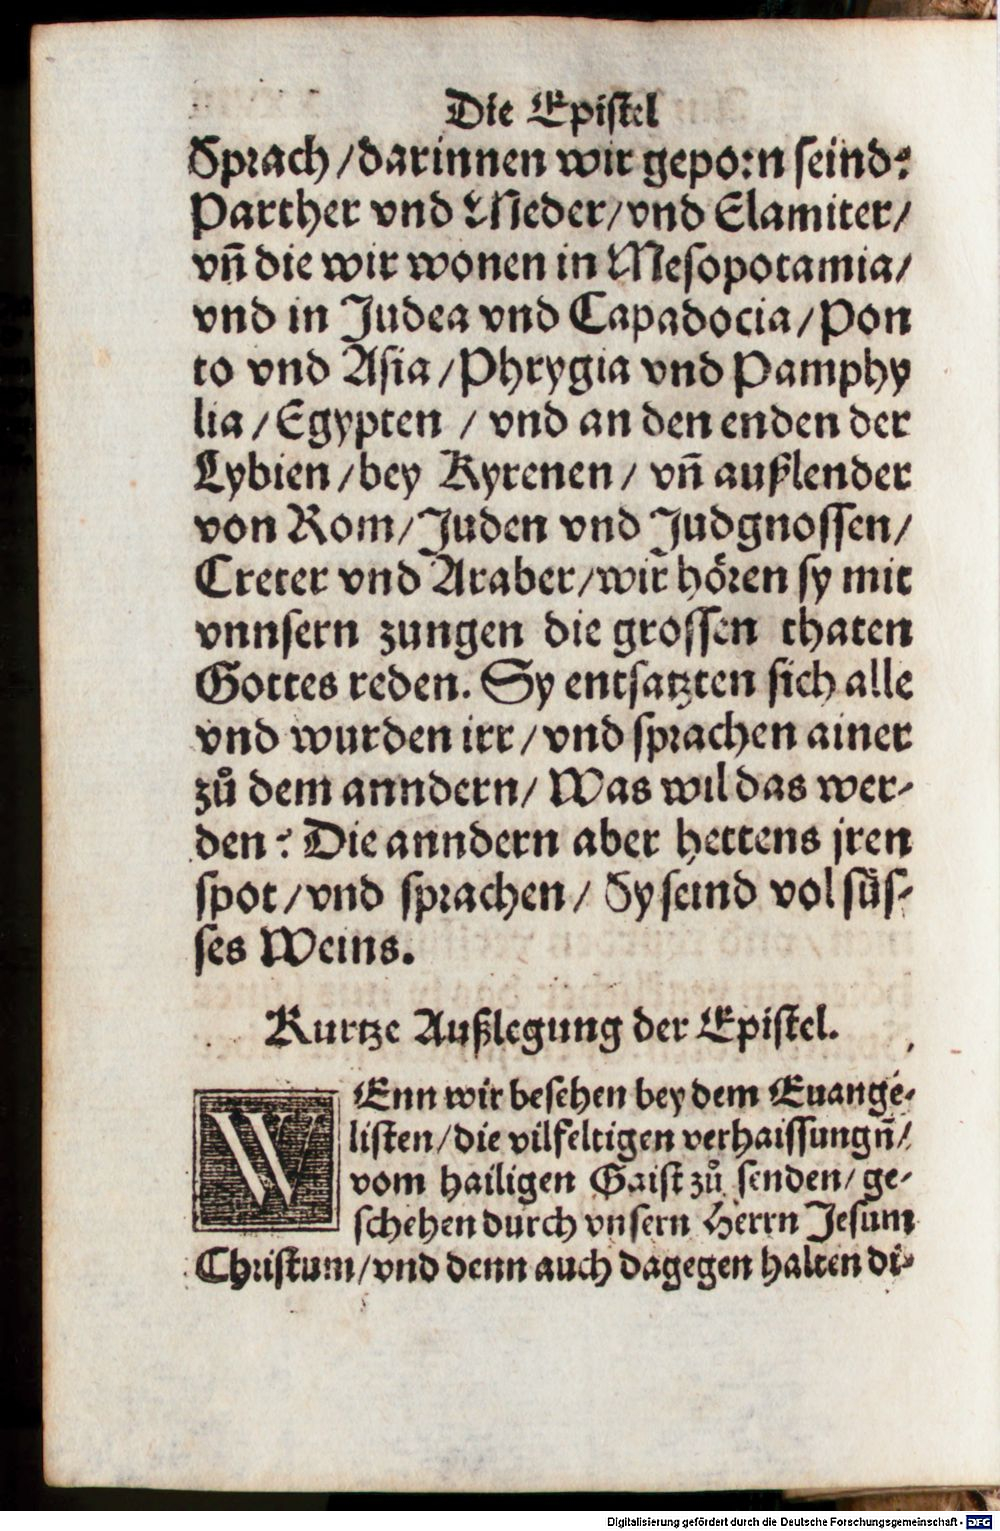 Die Epistel
Sprach / darinnen wir geporn seind?
Parther vnd Meder / vnd Elamiter /
vñ die wir wonen in Mesopotamia /
vnd in Judea vnd Capadocia / Pon
to vnd Asia / Phrygia vnd Pamphy
lia / Egypten / vnd an den enden der
Lybien / bey Kyrenen / vñ außlender
von Rom / Juden vnd Judgnossen /
Creter vnd Araber / wir hören sy mit
vnnsern zungen die grossen thaten
Gottes reden. Sy entsatzten sich alle
vnd wurden irr / vnd sprachen ainer
zů dem anndern / Was wil das wer-
den? Die anndern aber hettens jren
spot / vnd sprachen / Sy seind vol süs-
ses Weins.
Kurtze Außlegung der Epistel.
WEnn wir besehen bey dem Euange-
listen / die vilfeltigen verhaissungñ /
vom hailigen Gaist zů senden / ge-
schehen durch vnsern Herrn Jesum
Christum / vnd denn auch dagegen halten di-
Digitalisierung gefördert durch die Deutsche Forschungsgemeinschaft - DFG